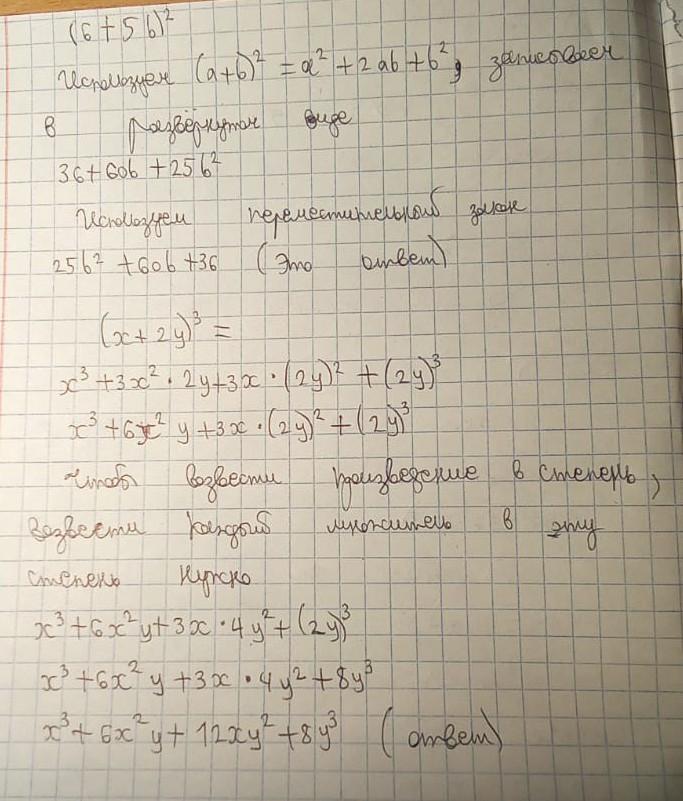 (6+5b)²
Используем (a+b)² = a² + 2ab + b², записываем
в развёрнутом виде
36+60b+25b²
Используем переместительный закон
25b² +60b +36 (Это ответ)
(x+2y)³ =
x³ +3x² · 2y+3x · (2y)² +(2y)³
x³ +6x² y +3x · (2y)² +(2y)³
чтобы возвести произведение в степень,
возвести каждый множитель в эту
степень нужно
x³+6x²y+3x · 4y²+(2y)³
x³+6x² y +3x · 4y² +8y³
x³+6x²y+ 12xy² +8y³ (ответ)